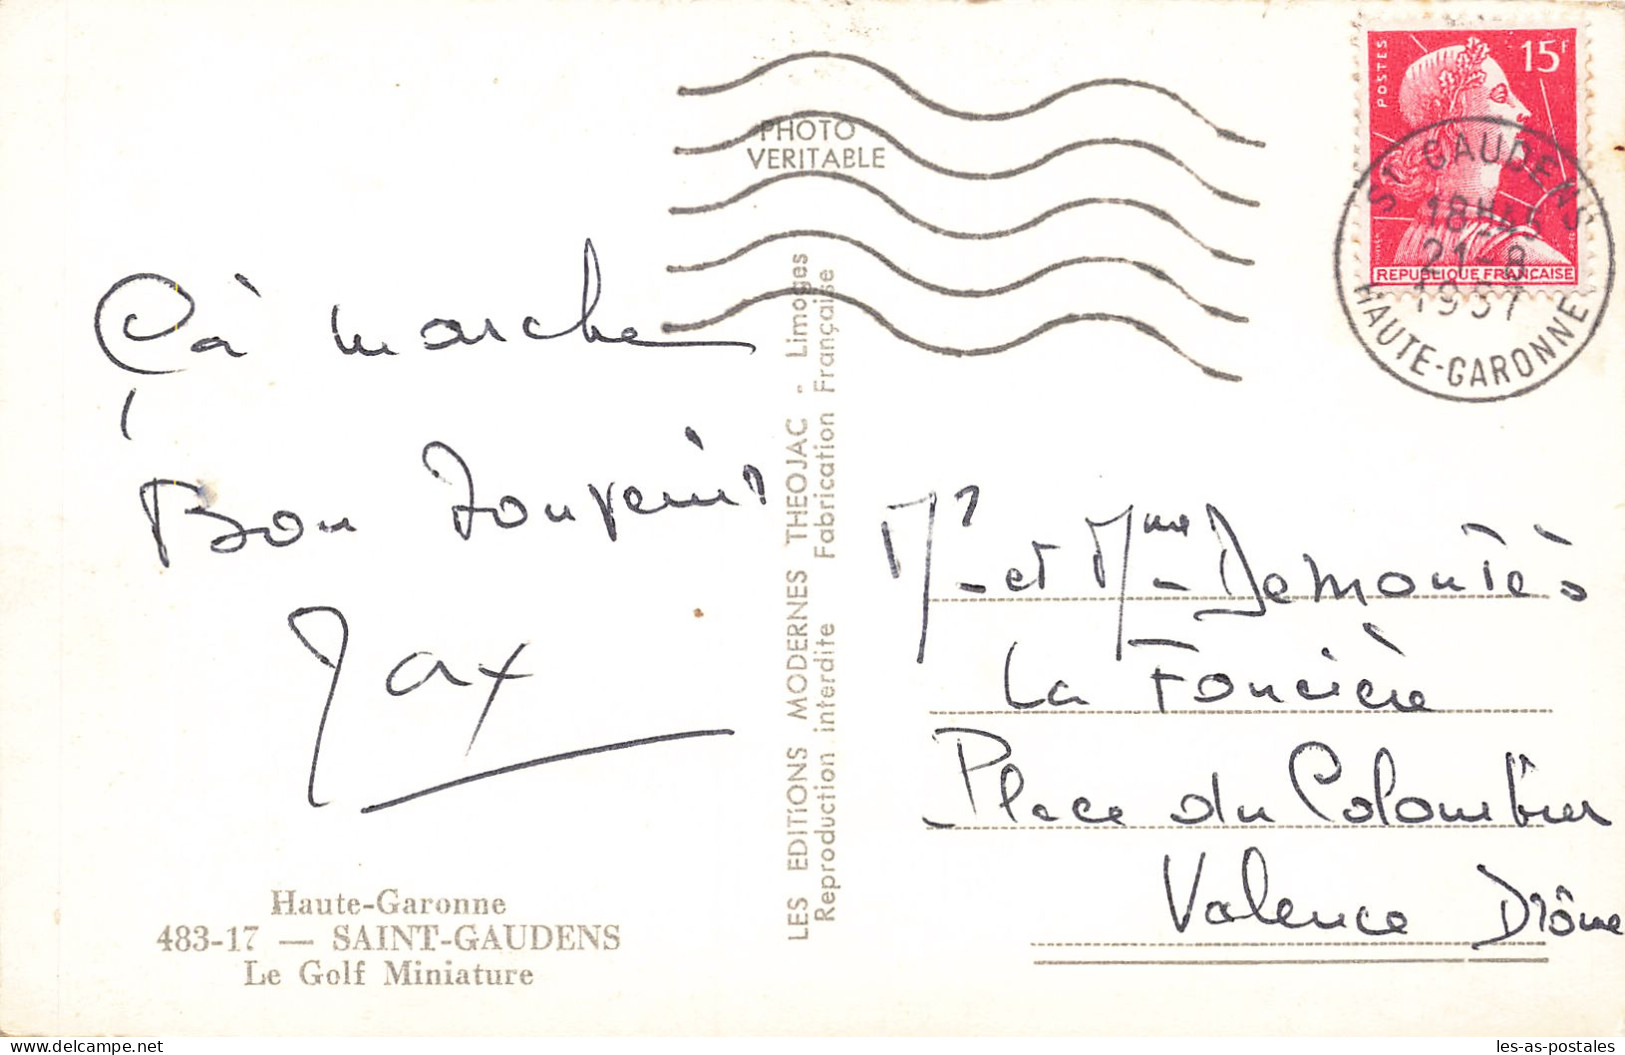 PHOTO
VERITABLE
POSTES
15F
REPUBLIQUE FRANÇAISE
ST GAUDENS
18H45
21-8
1957
HAUTE-GARONNE
Çà marche
Bon Souvenir
Max
LES EDITIONS MODERNES THEOJAC - Limoges
Reproduction interdite Fabrication Française
Mr et Mme Demontès
La Foncière
Place du Colombier
Valence Drôme
Haute-Garonne
483-17 — SAINT-GAUDENS
Le Golf Miniature
delcampe.net
les-as-postales